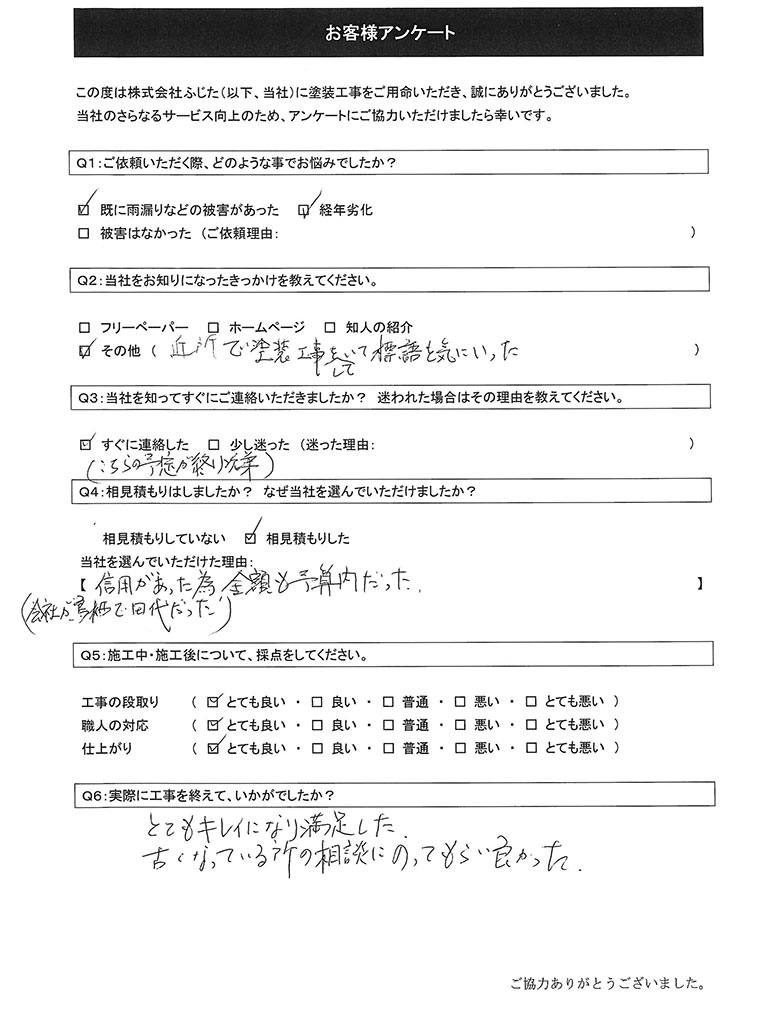 お客様アンケート
この度は株式会社ふじた(以下、当社)に塗装工事をご用命いただき、誠にありがとうございました。
当社のさらなるサービス向上のため、アンケートにご協力いただけましたら幸いです。
Q1:ご依頼いただく際、どのような事でお悩みでしたか?
☑ 既に雨漏りなどの被害があった ☑ 経年劣化
□ 被害はなかった (ご依頼理由: )
Q2:当社をお知りになったきっかけを教えてください。
□ フリーペーパー □ ホームページ □ 知人の紹介
☑ その他 ( 近所で塗装工事をして いて標語を気にいった )
Q3:当社を知ってすぐにご連絡いただきましたか? 迷われた場合はその理由を教えてください。
☑ すぐに連絡した □ 少し迷った (迷った理由: )
(こちらの予定が終り次第)
Q4:相見積もりはしましたか? なぜ当社を選んでいただけましたか?
相見積もりしていない ☑ 相見積もりした
当社を選んでいただけた理由:
【 信用があった為 金額も予算内だった. 】
(会社が鳥栖で田代だった)
Q5:施工中・施工後について、採点をしてください。
工事の段取り ( ☑ とても良い ・ □ 良い ・ □ 普通 ・ □ 悪い ・ □ とても悪い )
職人の対応 ( ☑ とても良い ・ □ 良い ・ □ 普通 ・ □ 悪い ・ □ とても悪い )
仕上がり ( ☑ とても良い ・ □ 良い ・ □ 普通 ・ □ 悪い ・ □ とても悪い )
Q6:実際に工事を終えて、いかがでしたか?
とてもキレイになり満足した.
古くなっている所の相談にのってもらい良かった.
ご協力ありがとうございました。